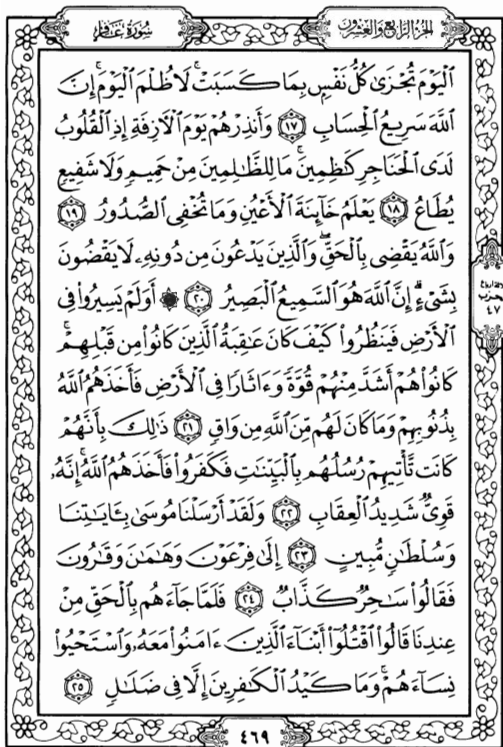 الجزء الرابع والعشرون
سورة غافر
ٱلْيَوْمَ تُجْزَىٰ كُلُّ نَفْسٍۭ بِمَا كَسَبَتْ ۚ لَا ظُلْمَ ٱلْيَوْمَ ۚ إِنَّ
ٱللَّهَ سَرِيعُ ٱلْحِسَابِ ١٧ وَأَنذِرْهُمْ يَوْمَ ٱلْـَٔازِفَةِ إِذِ ٱلْقُلُوبُ
لَدَى ٱلْحَنَاجِرِ كَـٰظِمِينَ ۚ مَا لِلظَّـٰلِمِينَ مِنْ حَمِيمٍ وَلَا شَفِيعٍ
يُطَاعُ ١٨ يَعْلَمُ خَآئِنَةَ ٱلْأَعْيُنِ وَمَا تُخْفِى ٱلصُّدُورُ ١٩
وَٱللَّهُ يَقْضِى بِٱلْحَقِّ ۖ وَٱلَّذِينَ يَدْعُونَ مِن دُونِهِۦ لَا يَقْضُونَ
بِشَىْءٍ ۗ إِنَّ ٱللَّهَ هُوَ ٱلسَّمِيعُ ٱلْبَصِيرُ ٢٠ ۞ أَوَلَمْ يَسِيرُوا۟ فِى
ٱلْأَرْضِ فَيَنظُرُوا۟ كَيْفَ كَانَ عَـٰقِبَةُ ٱلَّذِينَ كَانُوا۟ مِن قَبْلِهِمْ ۚ
كَانُوا۟ هُمْ أَشَدَّ مِنْهُمْ قُوَّةً وَءَاثَارًا فِى ٱلْأَرْضِ فَأَخَذَهُمُ ٱللَّهُ
بِذُنُوبِهِمْ وَمَا كَانَ لَهُم مِّنَ ٱللَّهِ مِن وَاقٍ ٢١ ذَٰلِكَ بِأَنَّهُمْ
كَانَت تَّأْتِيهِمْ رُسُلُهُم بِٱلْبَيِّنَـٰتِ فَكَفَرُوا۟ فَأَخَذَهُمُ ٱللَّهُ ۚ إِنَّهُۥ
قَوِىٌّ شَدِيدُ ٱلْعِقَابِ ٢٢ وَلَقَدْ أَرْسَلْنَا مُوسَىٰ بِـَٔايَـٰتِنَا
وَسُلْطَـٰنٍ مُّبِينٍ ٢٣ إِلَىٰ فِرْعَوْنَ وَهَـٰمَـٰنَ وَقَـٰرُونَ
فَقَالُوا۟ سَـٰحِرٌ كَذَّابٌ ٢٤ فَلَمَّا جَآءَهُم بِٱلْحَقِّ مِنْ
عِندِنَا قَالُوا۟ ٱقْتُلُوٓا۟ أَبْنَآءَ ٱلَّذِينَ ءَامَنُوا۟ مَعَهُۥ وَٱسْتَحْيُوا۟
نِسَآءَهُمْ ۚ وَمَا كَيْدُ ٱلْكَـٰفِرِينَ إِلَّا فِى ضَلَـٰلٍ ٢٥
حزب
٤٧
٤٦٩